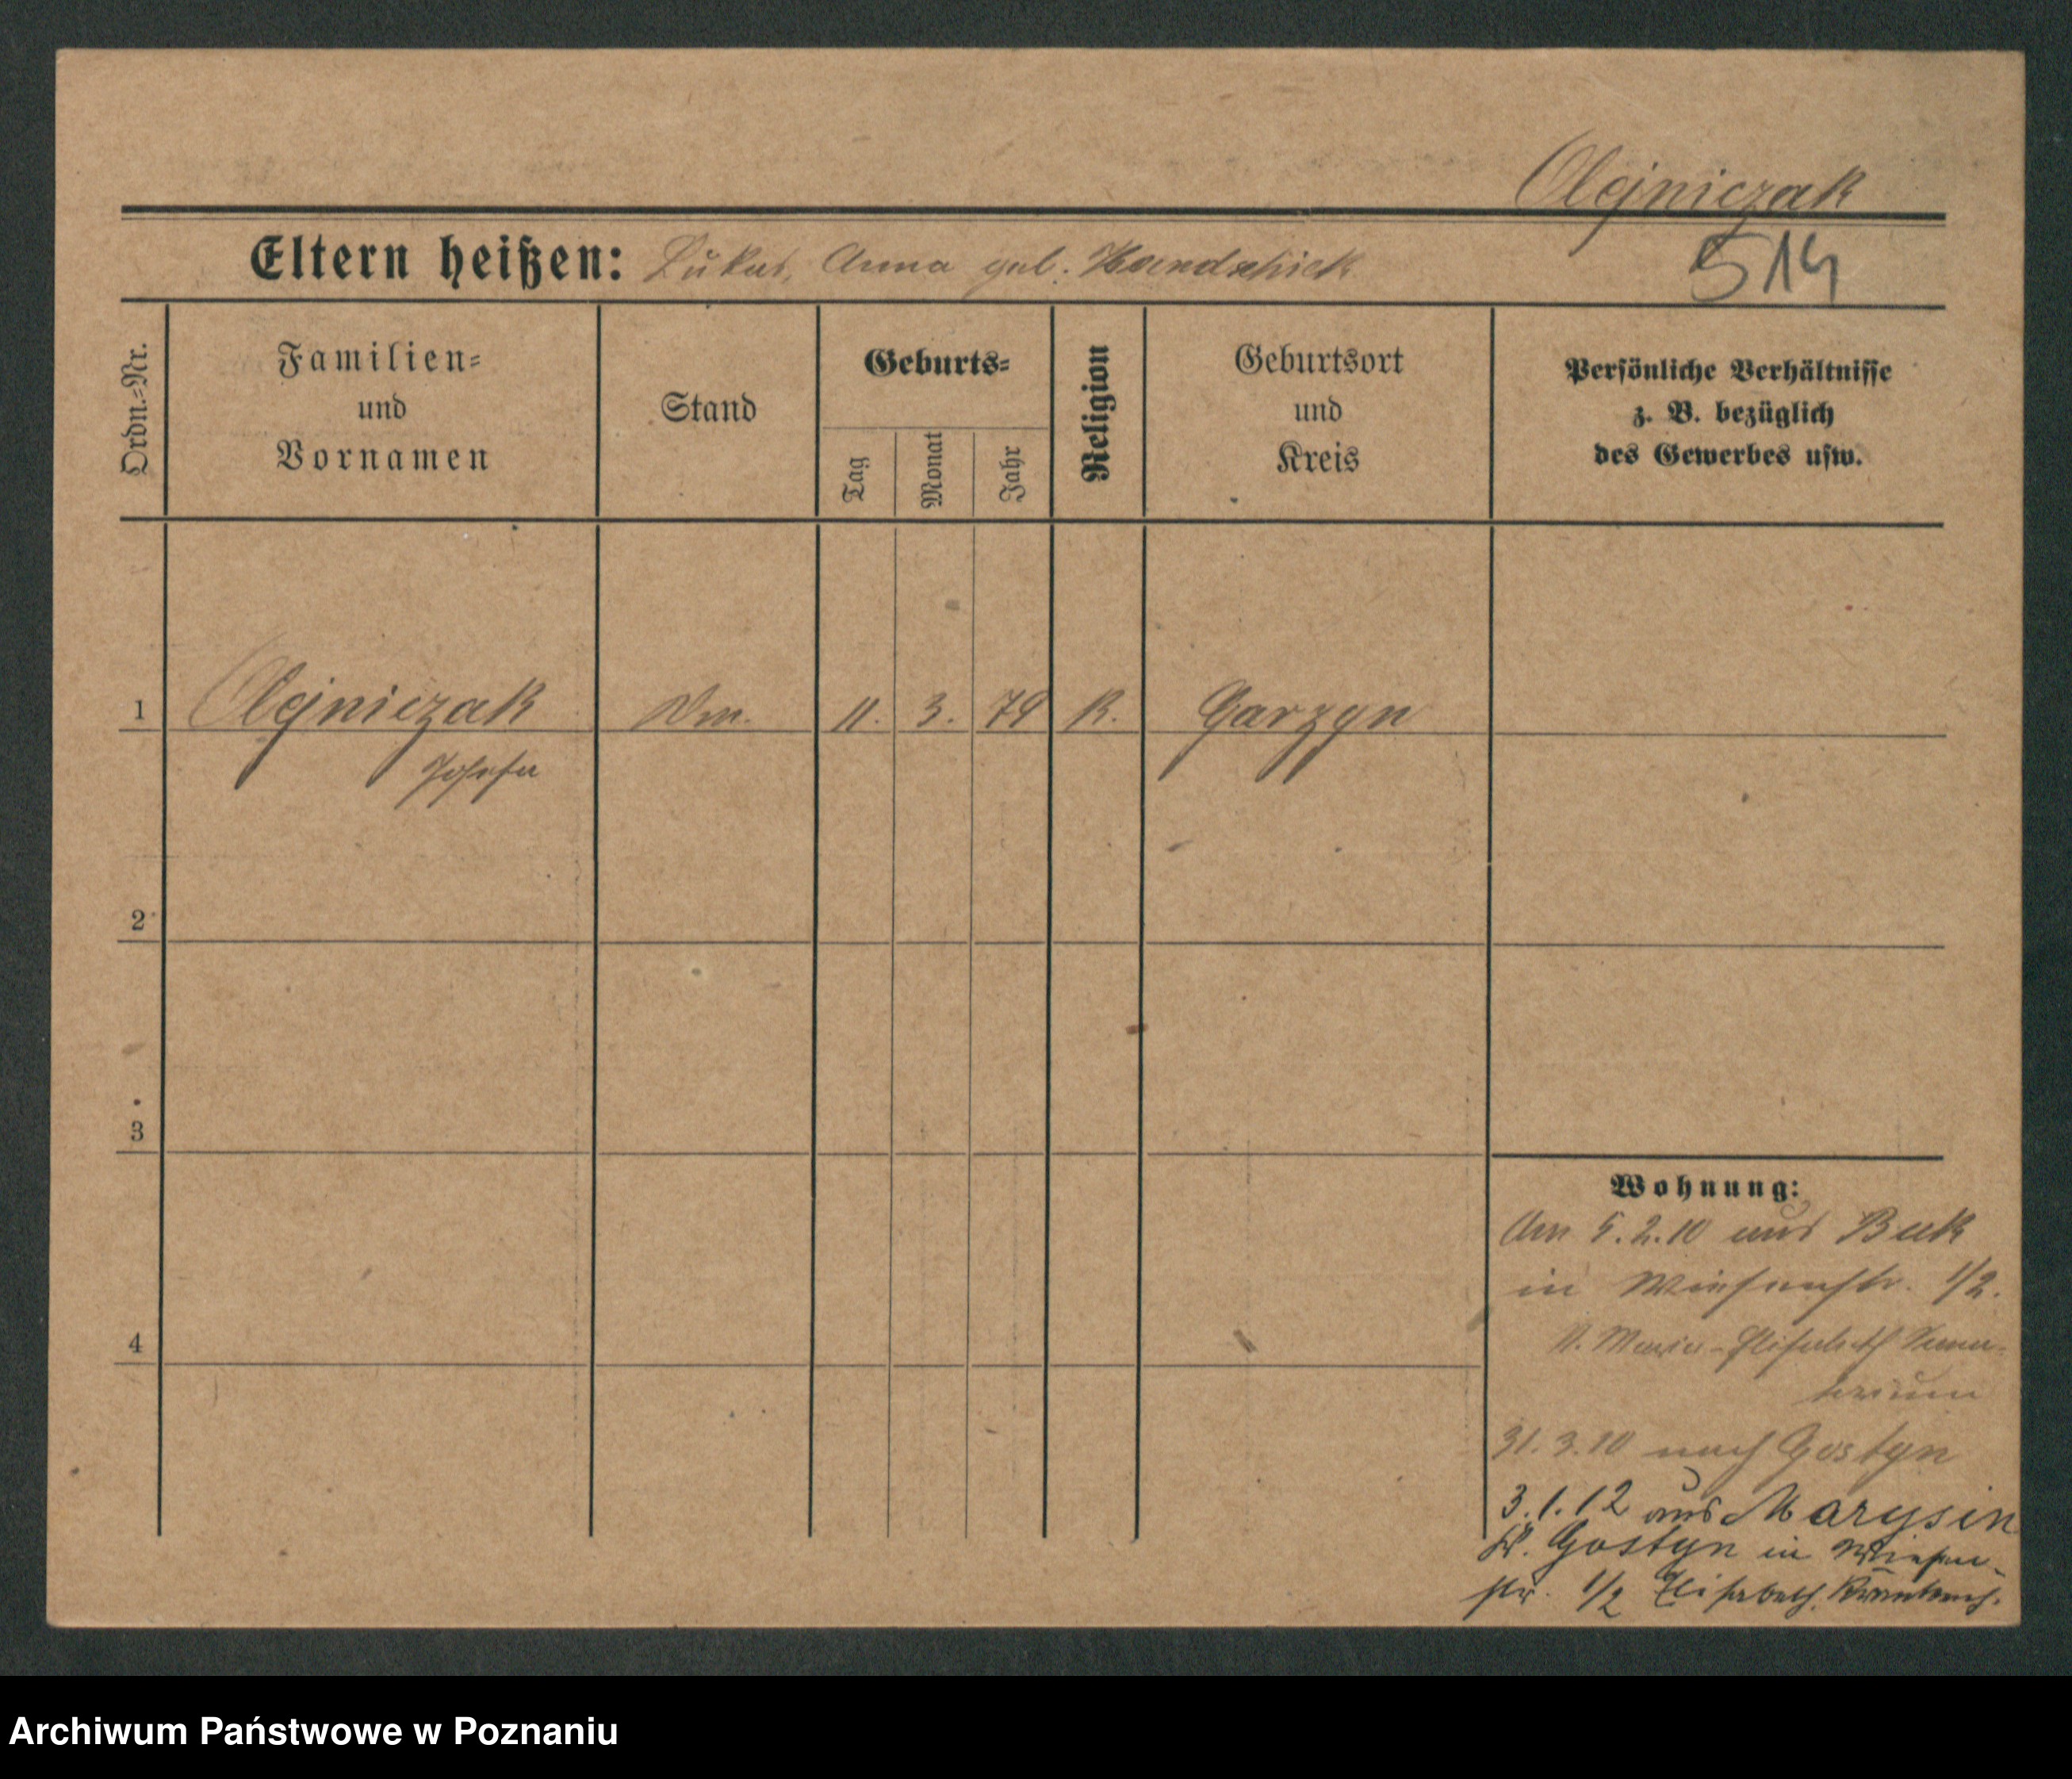 Olejniczak
Eltern heißen: Lukas, Anna geb. Handschick
514
Ordn.-Nr.
Familien-
und
Vornamen
Stand
Geburts-
Tag
Monat
Jahr
Religion
Geburtsort
und
Kreis
Persönliche Verhältnisse
z. B. bezüglich
des Gewerbes usw.
1 Olejniczak 11. 3. 79 K. Garzyn
Josefa
2
3
4
Wohnung:
Am 5.2.10 aus Buk
in Wiesenstr. 1/2.
Maria-Elisabeth
31.3.10 nach Gostyn
3.1.12 aus Marysin
Kr. Gostyn in Wiesen-
str. 1/2 Elisabeth
Archiwum Państwowe w Poznaniu